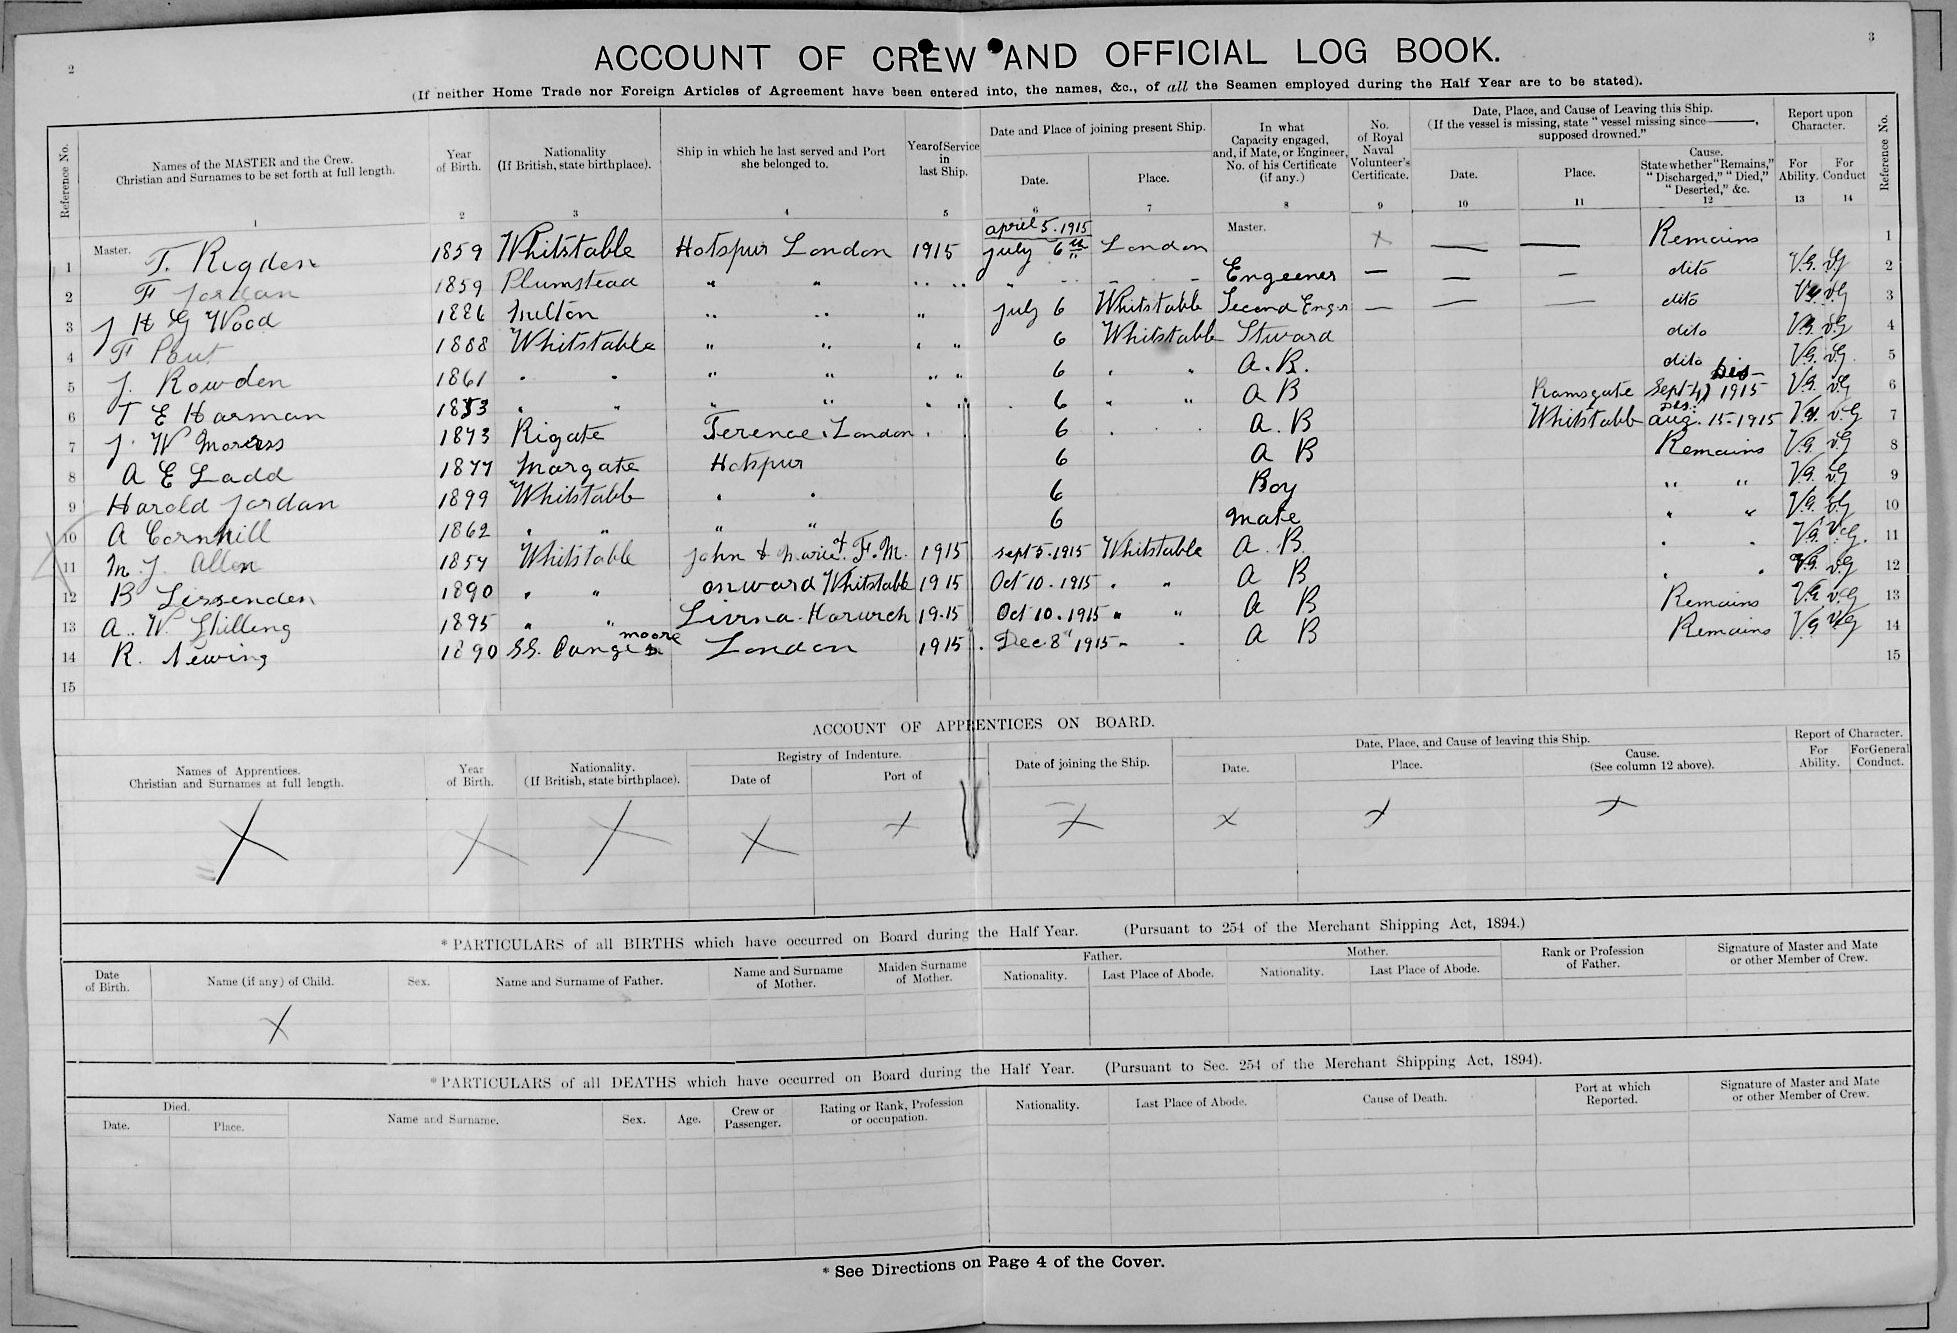 2
3
ACCOUNT OF CREW AND OFFICIAL LOG BOOK.
(If neither Home Trade nor Foreign Articles of Agreement have been entered into, the names, &c., of all the Seamen employed during the Half Year are to be stated).
Reference No. Names of the MASTER and the Crew. Christian and Surnames to be set forth at full length. Year of Birth. Nationality (If British, state birthplace). Ship in which he last served and Port she belonged to. Year of Service in last Ship. Date and Place of joining present Ship. Date. Place. In what Capacity engaged, and, if Mate, or Engineer, No. of his Certificate (if any.) No. of Royal Naval Volunteer's Certificate. Date, Place, and Cause of Leaving this Ship. (If the vessel is missing, state "vessel missing since———, supposed drowned." Date. Place. Cause. State whether "Remains," "Discharged," "Died," "Deserted," &c. Report upon Character. For Ability. For Conduct Reference No.
1 2 3 4 5 6 7 8 9 10 11 12 13 14
april 5. 1915
1 Master. T. Rigden 1859 Whitstable Hotspur London 1915 july 6th London Master. X — — Remains 1
2 F Jordan 1859 Plumstead " " " " Engeener — — — dito V.G. V.G 2
3 J H G Wood 1886 Milton " " " july 6 Whitstable Second Engr — — — dito V.G V.G 3
4 F Pout 1888 Whitstable " " " " 6 Whitstable Stward dito V.G. V.G 4
5 J. Rowden 1861 " " " " " " 6 " " A. B. dito V.G. V.G. 5
6 T E Harman 1853 " " " " " " 6 " " A B Ramsgate Dis- Sept 4 1915 V.G. V.G 6
7 J. W 1873 Rigate Terence. London " 6 " " A. B Whitstable Dis. aug. 15-1915 V.G. V.G 7
8 A E Ladd 1877 Margate Hotspur 6 A B Remains V.G. V.G 8
9 Harold Jordan 1899 Whitstable " " 6 Boy " " V.G. V.G 9
10 A Cornhill 1862 " " " " 6 Mate " " V.G. V.G 10
11 M. J. Allen 1854 Whitstable John & F. M. 1915 Sept 5. 1915 Whitstable A. B. " " V.G. V.G. 11
12 B Lissenden 1890 " " Onward Whitstable 1915 Oct 10. 1915 " " A B " " V.G. V.G 12
13 A. W. Stilling 1895 " " Harwich 19.15 Oct 10. 1915 " " A B Remains V.G V.G 13
14 R. Newing 1890 SS. moore London 1915 Dec. 8 1915 " " A B Remains V.G V.G 14
15 15
ACCOUNT OF APPRENTICES ON BOARD.
Names of Apprentices. Christian and Surnames at full length. Year of Birth. Nationality. (If British, state birthplace). Registry of Indenture. Date of Port of Date of joining the Ship. Date, Place, and Cause of leaving this Ship. Date. Place. Cause. (See column 12 above). Report of Character. For Ability. For General Conduct.
X X X X X X X X X
*PARTICULARS of all BIRTHS which have occurred on Board during the Half Year. (Pursuant to 254 of the Merchant Shipping Act, 1894.)
Date of Birth. Name (if any) of Child. Sex. Name and Surname of Father. Name and Surname of Mother. Maiden Surname of Mother. Father. Nationality. Last Place of Abode. Mother. Nationality. Last Place of Abode. Rank or Profession of Father. Signature of Master and Mate or other Member of Crew.
X
*PARTICULARS of all DEATHS which have occurred on Board during the Half Year. (Pursuant to Sec. 254 of the Merchant Shipping Act, 1894).
Died. Date. Place. Name and Surname. Sex. Age. Crew or Passenger. Rating or Rank, Profession or occupation. Nationality. Last Place of Abode. Cause of Death. Port at which Reported. Signature of Master and Mate or other Member of Crew.
* See Directions on Page 4 of the Cover.